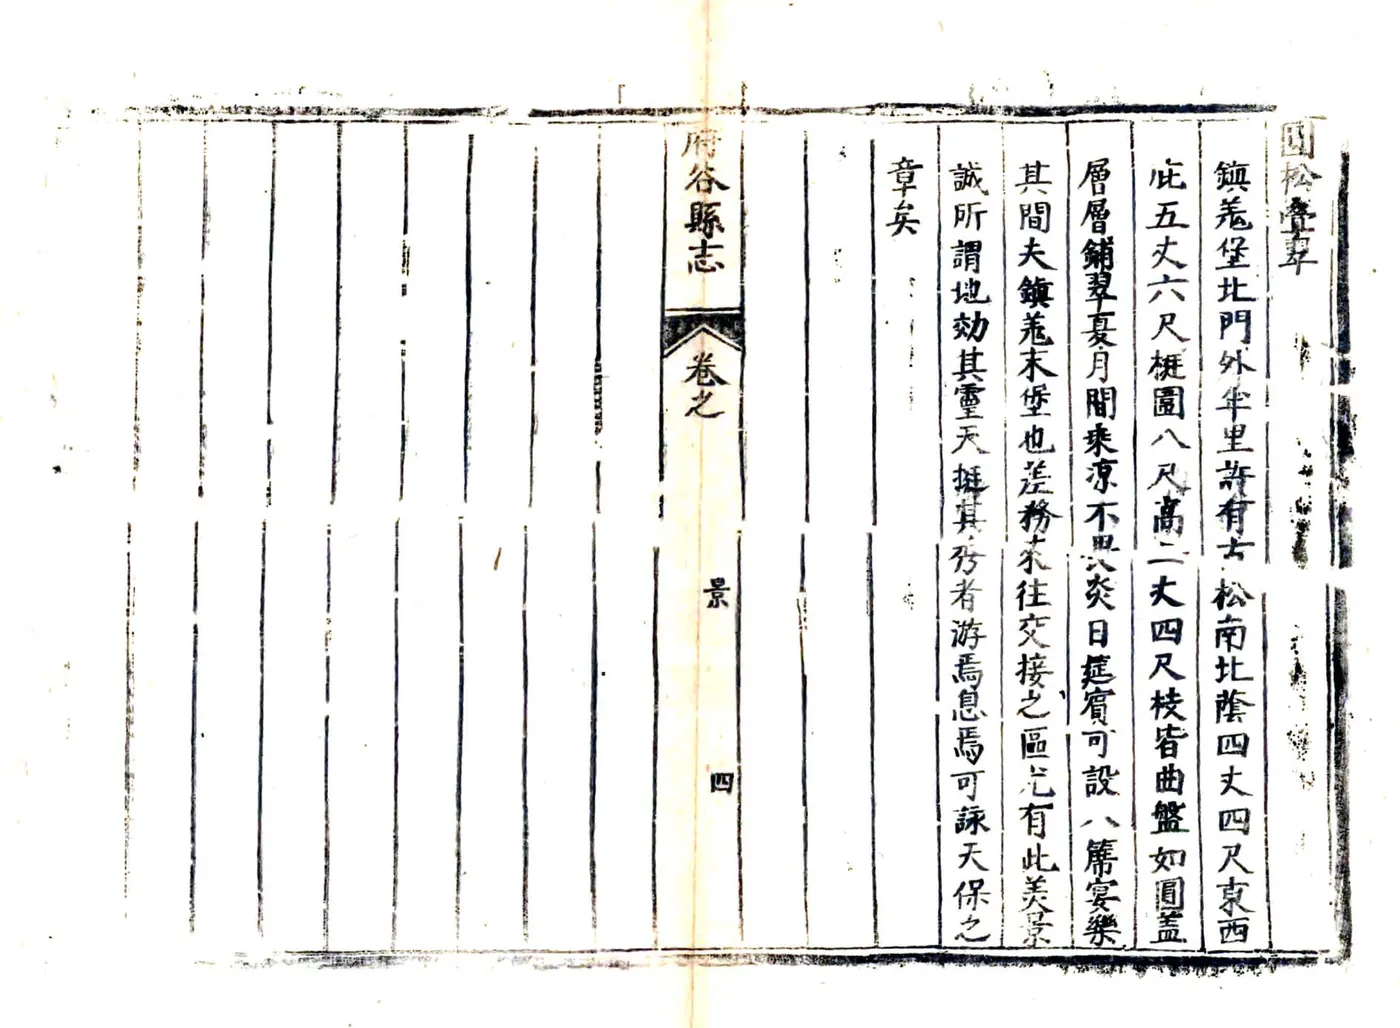 圓松疊翠
鎮羗堡北門外半里許有古松南北蔭四丈四尺東西
庇五丈六尺梃圍八尺高二丈四尺枝皆曲盤如圓盖
層層鋪翠夏月間乘凉不畏炎日筵賓可設八席宴樂
其間夫鎮羗末堡也差務來往交接之區尤有此美景
誠所謂地効其靈天挺其秀者游焉息焉可詠天保之
章矣
府谷縣志
卷之
景
四